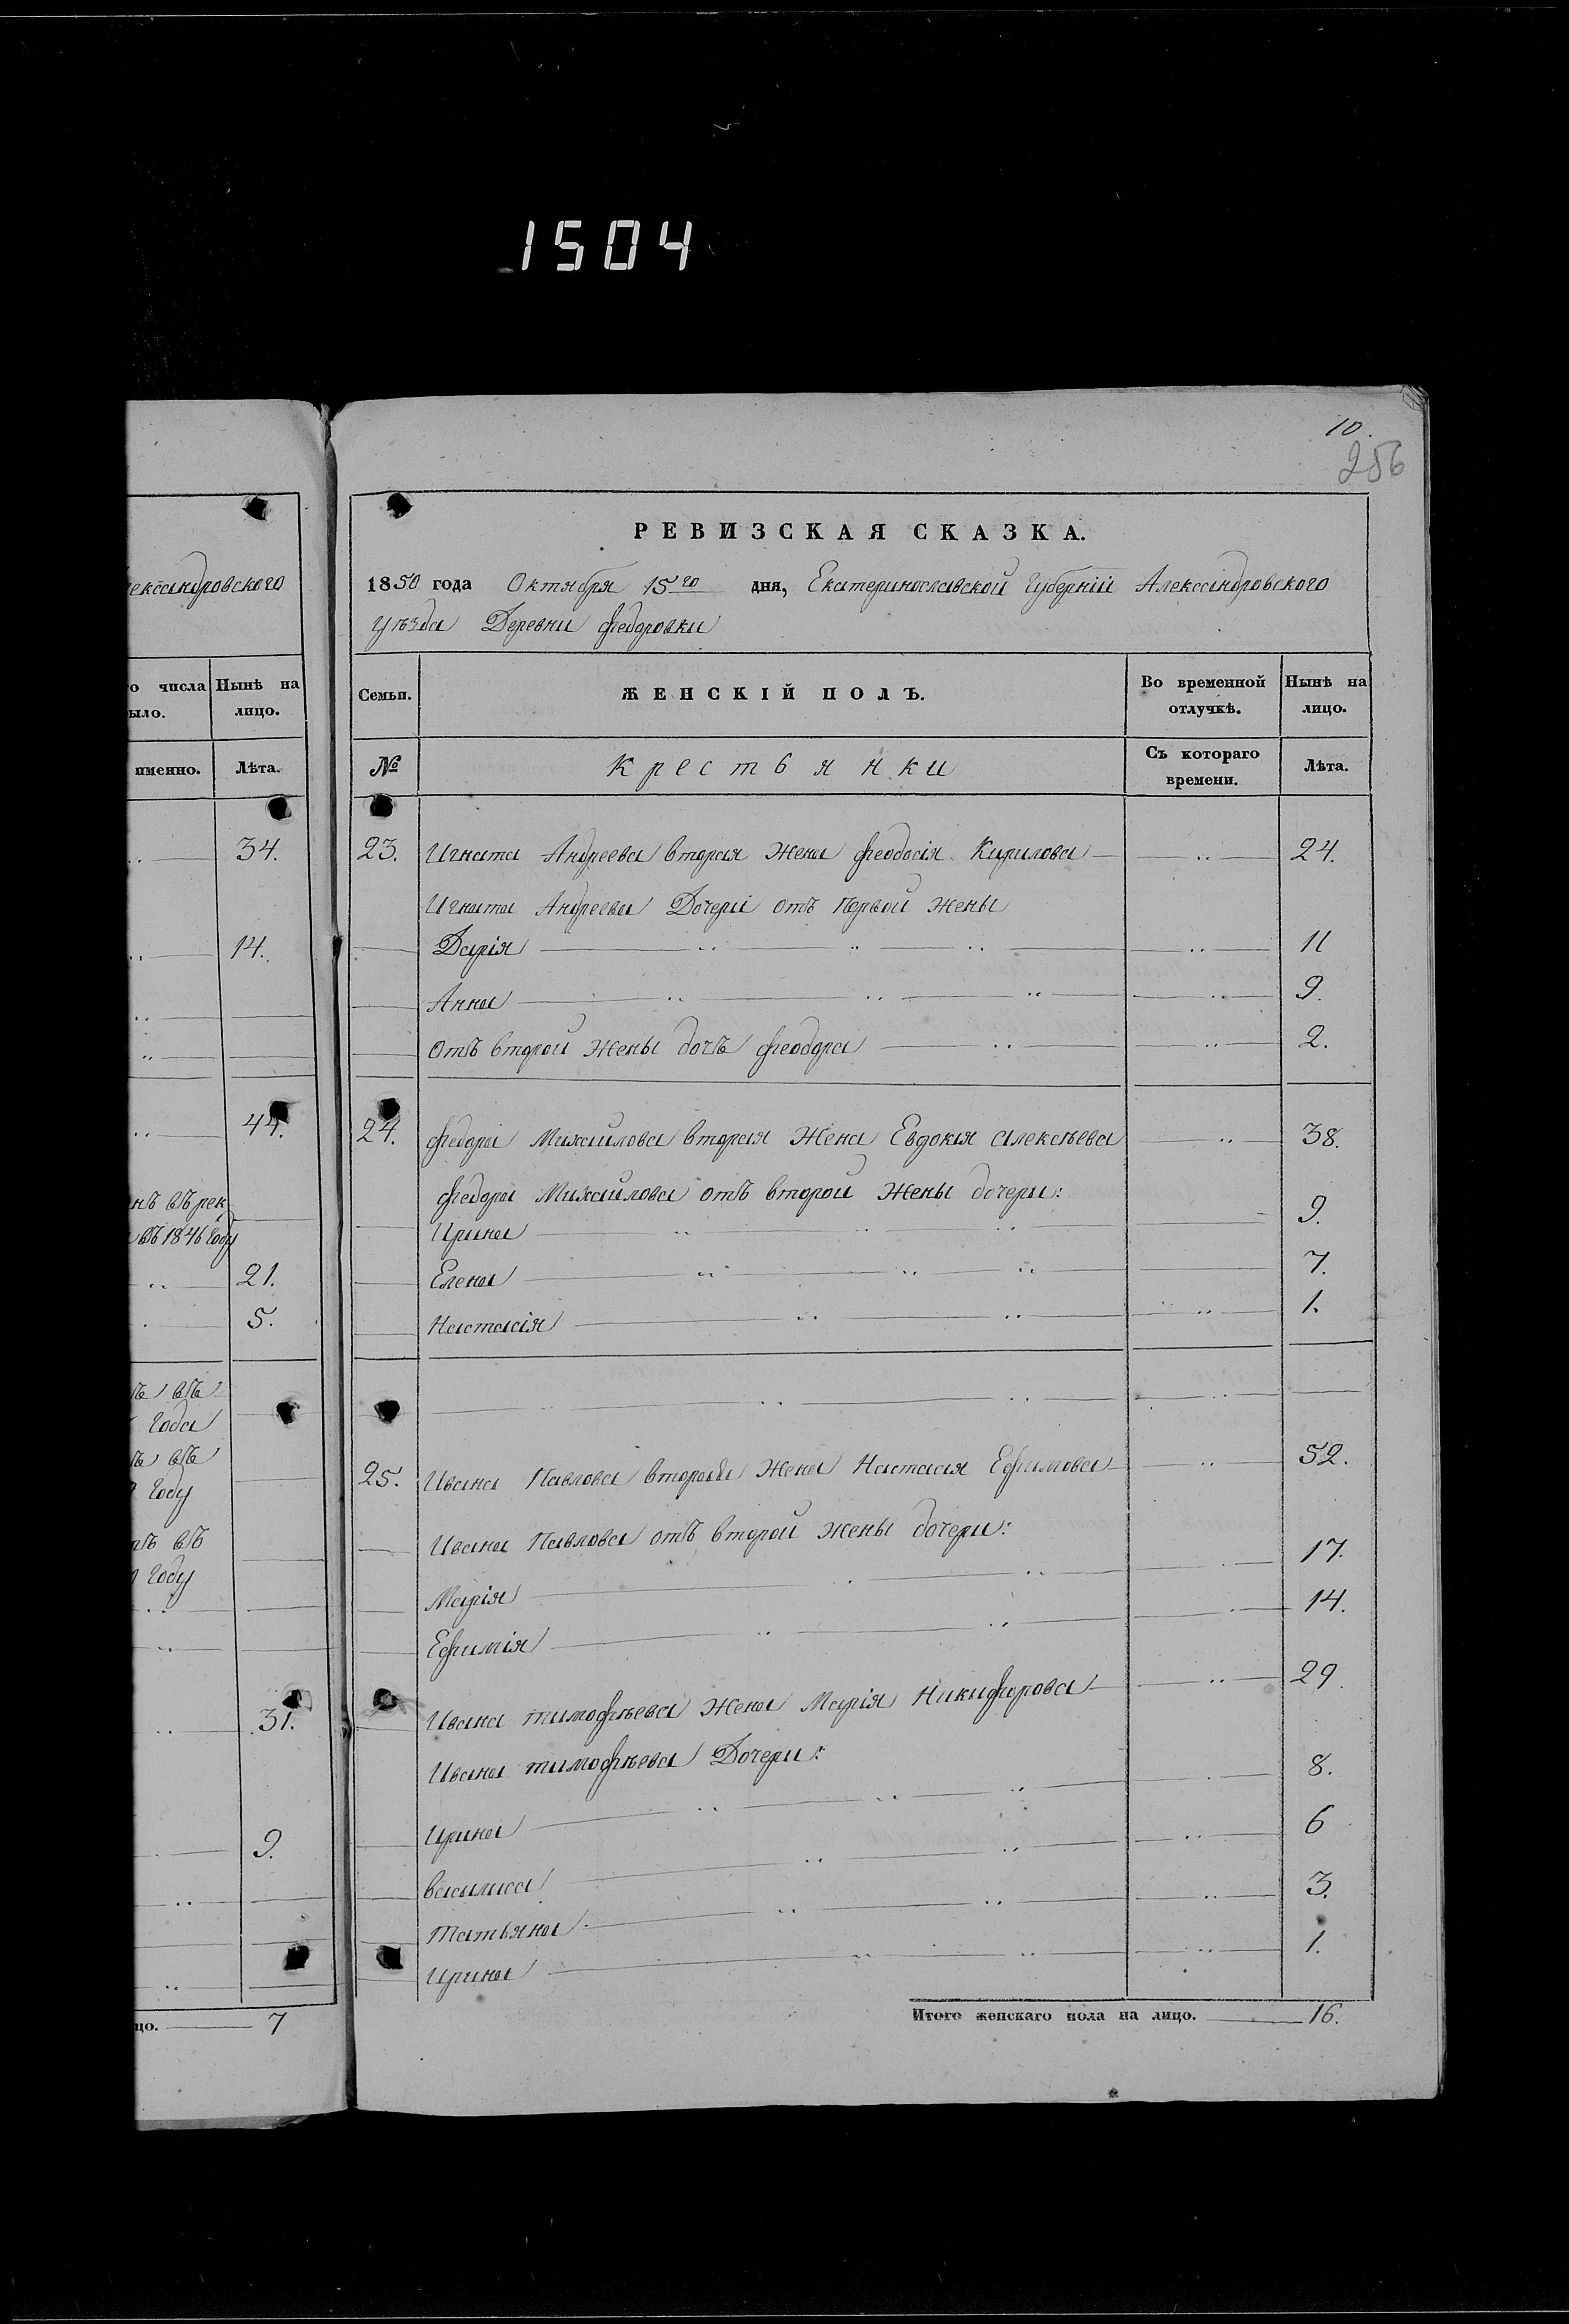 1504
10.
256
лександровского
о числа Нынѣ на
ыло. лицо.
именно. Лѣта.
34.
14.
44.
нъ въ рек
въ 1846 году
21.
5.
ъ въ
года
ъ въ
году
въ
году
31.
9.
цо. 7
РЕВИЗСКАЯ СКАЗКА.
1850 года Октября 15го дня, Екатеринославской Губерніи Александровского
уѣзда Деревни Федоровки
Семьи. ЖЕНСКІЙ ПОЛЪ. Во временной отлучкѣ. Нынѣ на лицо.
№ Крестьянки Съ котораго времени. Лѣта.
23. Игната Андреева вторая жена Феодосія Кирилова 24.
Игната Андреева Дочери отъ Первой жены
Дарія 11
Анна 9.
Отъ второй жены дочь Феодора 2.
24. Федора Михайлова вторая жена Евдокія Алексѣева 38.
Федора Михайлова отъ второй жены дочери:
Ирина 9.
Елена 7.
Настасія 1.
25. Ивана Павлова вторая жена Настасія Ефимова 52.
Ивана Павлова отъ второй жены дочери:
Марія 17.
Ефимія 14.
Ивана тимофѣева жена Марія Никифорова 29.
Ивана тимофѣева Дочери:
Ирина 8.
василиса 6
татьяна 3.
Ирина 1.
Итого женскаго пола на лицо. 16.